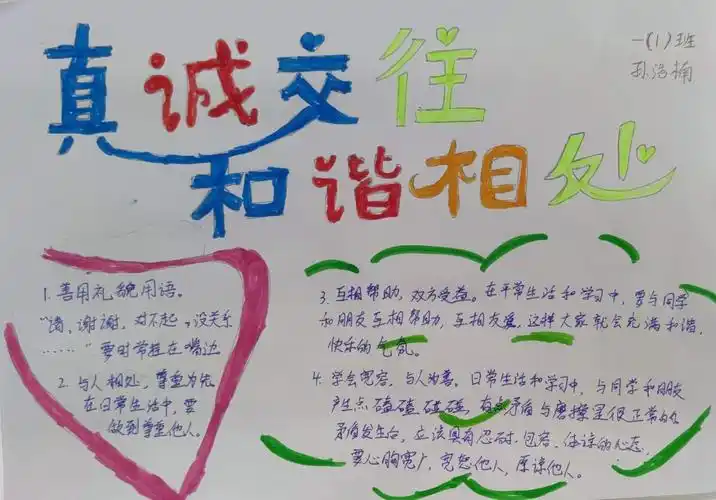 真诚交往
和谐相处
一(1)班
孙浩楠
1. 善用礼貌用语。
"请,谢谢,对不起,没关系
……" 要时常挂在嘴边
2. 与人相处,尊重为先
在日常生活中,要
做到尊重他人。
3. 互相帮助,双方受益。在平常生活和学习中,要与同学
和朋友互相帮助,互相友爱,这样大家就会充满和谐、
快乐的气氛。
4. 学会宽容,与人为善。日常生活和学习中,与同学和朋友
产生点磕磕碰碰,有点矛盾与摩擦是很正常的
矛盾发生后,应该具有忍耐、包容、体谅的心态
要心胸宽广,宽恕他人,原谅他人。